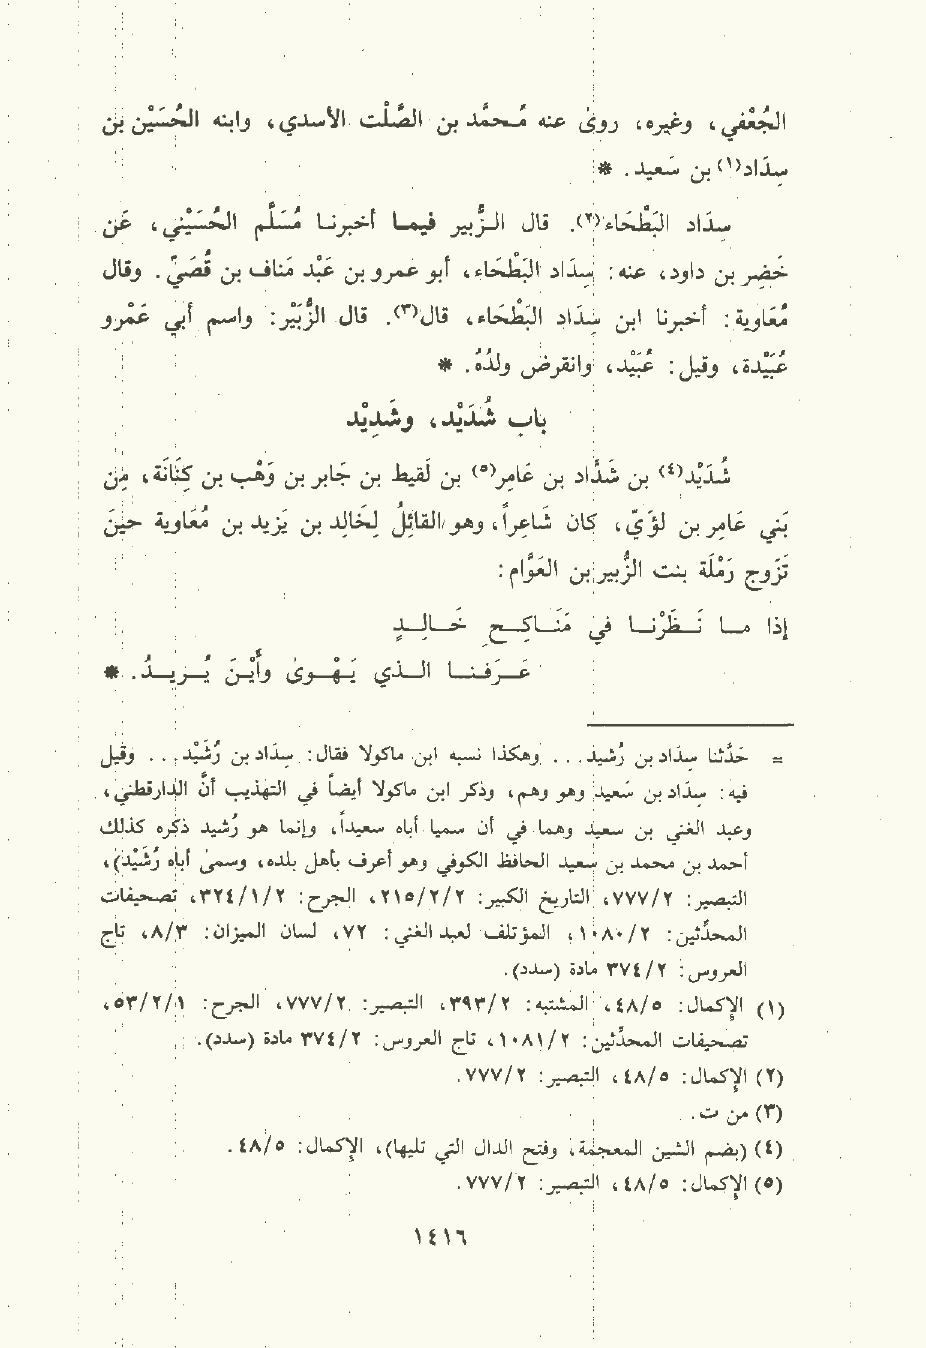 الجُعْفي، وغيره، روىٰ عنه مُحمَّد بن الصَّلْت الأسدي، وابنه الحُسَيْن بن
سِدَاد(١) بن سَعيد. *
سِدَاد البَطْحَاء(٢). قال الزُّبير فيما أخبرنا مُسَلَّم الحُسَيْني، عَن
خَضِر بن داود، عنه: سِدَاد البَطْحَاء، أبو عمرو بن عَبْد مَناف بن قُصَيّ. وقال
مُعَاوية: أخبرنا ابن سِدَاد البَطْحَاء، قال(٣). قال الزُّبَيْر: واسم أبي عَمْرو
عُبَيْدة، وقيل: عُبَيْد، وانقرض ولدُهُ. *
باب شُدَيْد، وشَدِيْد
شُدَيْد(٤) بن شَدَّاد بن عَامِر(٥) بن لَقيط بن جَابر بن وَهْب بن كِنَانَة، مِن
بَني عَامِر بن لُؤَيّ، كان شَاعِراً، وهو القَائِلُ لِخَالِد بن يَزِيد بن مُعَاوية حينَ
تَزَوج رَمْلَة بنت الزُّبير بن العَوَّام:
إذا مــا نَــظَرْنــا في مَنَــاكِــحِ خَــالِــدٍ
عَــرَفنــا الــذي يَــهْــوىٰ وأَيْــنَ يُــريــدُ. *
= حَدّثنا سِدَاد بن رُشيد... وهكذا نسبه ابن ماكولا فقال: سِدَاد بن رُشَيْد... وقيل
فيه: سِدَاد بن سَعيد وهو وهم، وذكر ابن ماكولا أيضاً في التهذيب أنَّ الدارقطني،
وعبد الغني بن سعيد وهما في أن سميا أباه سعيداً، وإنما هو رُشيد ذكره كذلك
أحمد بن محمد بن سعيد الحافظ الكوفي وهو أعرف بأهل بلده، وسمىٰ أباه رُشَيْد)،
التبصير: ٧٧٧/٢، التاريخ الكبير: ٢١٥/٢/٢، الجرح: ٣٢٤/١/٢، تصحيفات
المحدِّثين: ١٠٨٠/٢، المؤتلف لعبد الغني: ٧٢، لسان الميزان: ٨/٣، تاج
العروس: ٣٧٤/٢ مادة (سدد).
(١) الإِكمال: ٤٨/٥، المشتبه: ٣٩٣/٢، التبصير: ٧٧٧/٢، الجرح: ٥٣/٢/١،
تصحيفات المحدِّثين: ١٠٨١/٢، تاج العروس: ٣٧٤/٢ مادة (سدد).
(٢) الإِكمال: ٤٨/٥، التبصير: ٧٧٧/٢.
(٣) من ت.
(٤) (بضم الشين المعجمة، وفتح الدال التي تليها)، الإِكمال: ٤٨/٥.
(٥) الإِكمال: ٤٨/٥، التبصير: ٧٧٧/٢.
١٤١٦